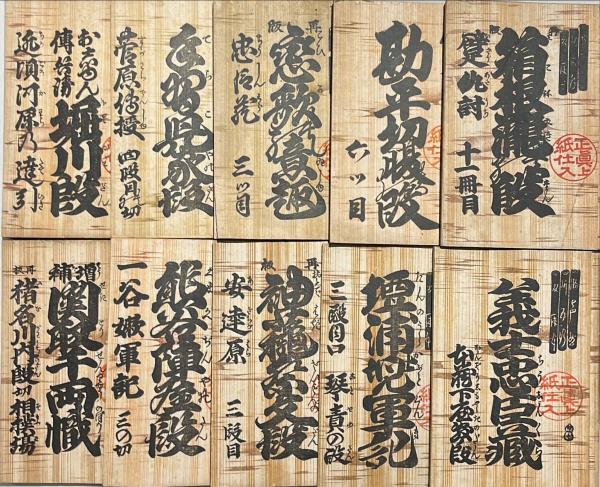 箱根瀧段
躄仇討 十一冊目
正真上
紙仕入
勘平切腹段
六ツ目
再版
恋歌意趣
忠臣蔵 三ツ目
菅原傳授 四段目切
堀川段
傳兵衛
近頃河原の達引
義士忠臣蔵
本蔵下屋敷段
正真上
紙仕入
壇浦兜軍記
三段目口 琴責の段
再版
袖萩祭文段
安達原 三段目
熊谷陣屋段
一谷嫩軍記 三の切
増補
関取千両幟
再板
猪名川内段切 相撲場